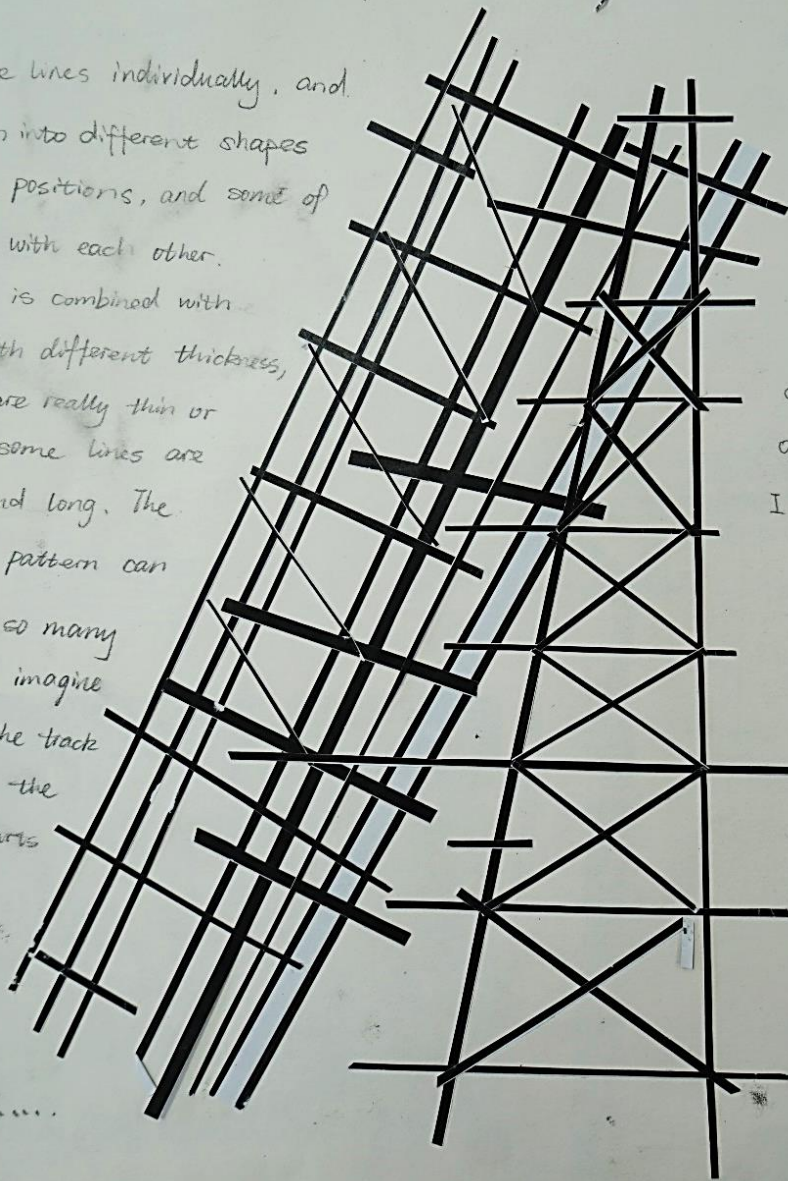 lines individually, and
into different shapes
positions, and some of
with each other.
is combined with
different thickness,
are really thin or
some lines are
long. The
pattern can
so many
imagine
the track
the
I
.....